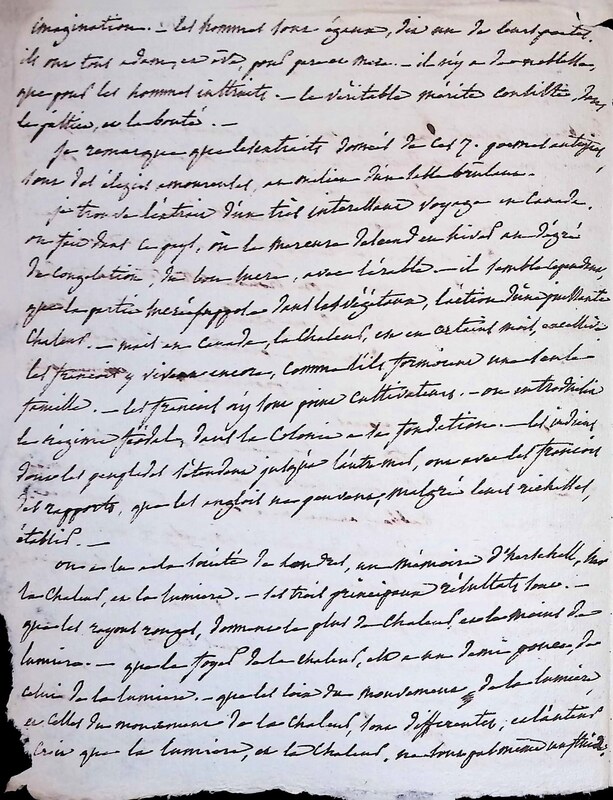 imagination. – les hommes sont égaux, dit un de leurs poetes.
ils ont tous adam, et ève, pour pere et mere. – il n'y a de noblesse,
que pour les hommes instruits. – le véritable mérite consiste dans
la justice, et la bonté. –
je remarque que les extraits donnés de ces 7. poemes antiques,
sont des élégies amoureuses, au milieu d'un sable brulant.
je trouve l'extrait d'un très interessant voyage en Canada.
on fait dans ce pays, où le mercure descend en hiver au dégré
de congelation, du bon sucre, avec l'érable. – il semble cependant
que la partie sucrée suppose dans les végétaux, l'action d'une puissante
chaleur. – mais en Canada, la chaleur, est en certains mois, excessive.
les francois y vivent encore, comme s'ils formoient une seule
famille. – les francois n'y sont point cultivateurs. – on introduisit
le régime féodal, dans la colonie a sa fondation. – les indiens
dont les peuplades s'étendent jusqu'à l'autre mer, ont avec les francois
des rapports, que les anglois ne peuvent, malgré leurs richesses,
établir. –
on a lu a la société de Londres, un mémoire d'herschell, sur
la chaleur, et la lumiere. – ses trois principaux résultats sont. –
que les rayons rouges, donnent le plus de chaleur, et le moins de
lumiere. – que le foyer de la chaleur, est a un demi pouce, de
celui de la lumiere. – que les loix du mouvement de la lumiere
et celles du mouvement de la chaleur, sont differentes, et l'auteur
croit que la lumiere, et la chaleur, ne sont pas même un fluide.